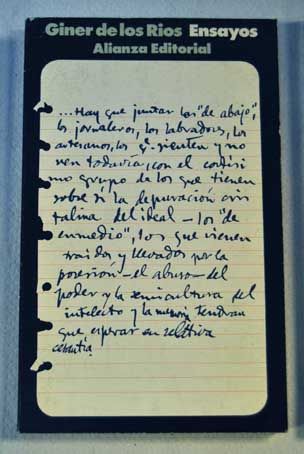 Giner de los Rios Ensayos
Alianza Editorial
...Hay que juntar los "de abajo",
los jornaleros, los labradores, los
artesanos, los q. sienten y no
ven todavía, con el cortísi
mo grupo de los que tienen
sobre sí la depuración
del ideal - los "de
enmedio", los que vienen
traidos y llevados por la
posesión - el abuso - del
poder y la semicultura del
intelecto y la tendrán
que esperar en relativa
cesantía.